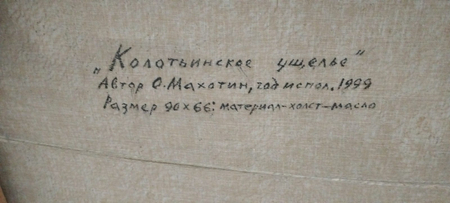 „Колотьинское ущелье"
Автор О.Махотин, год испол. 1999
Размер 90х66: материал-холст-масло